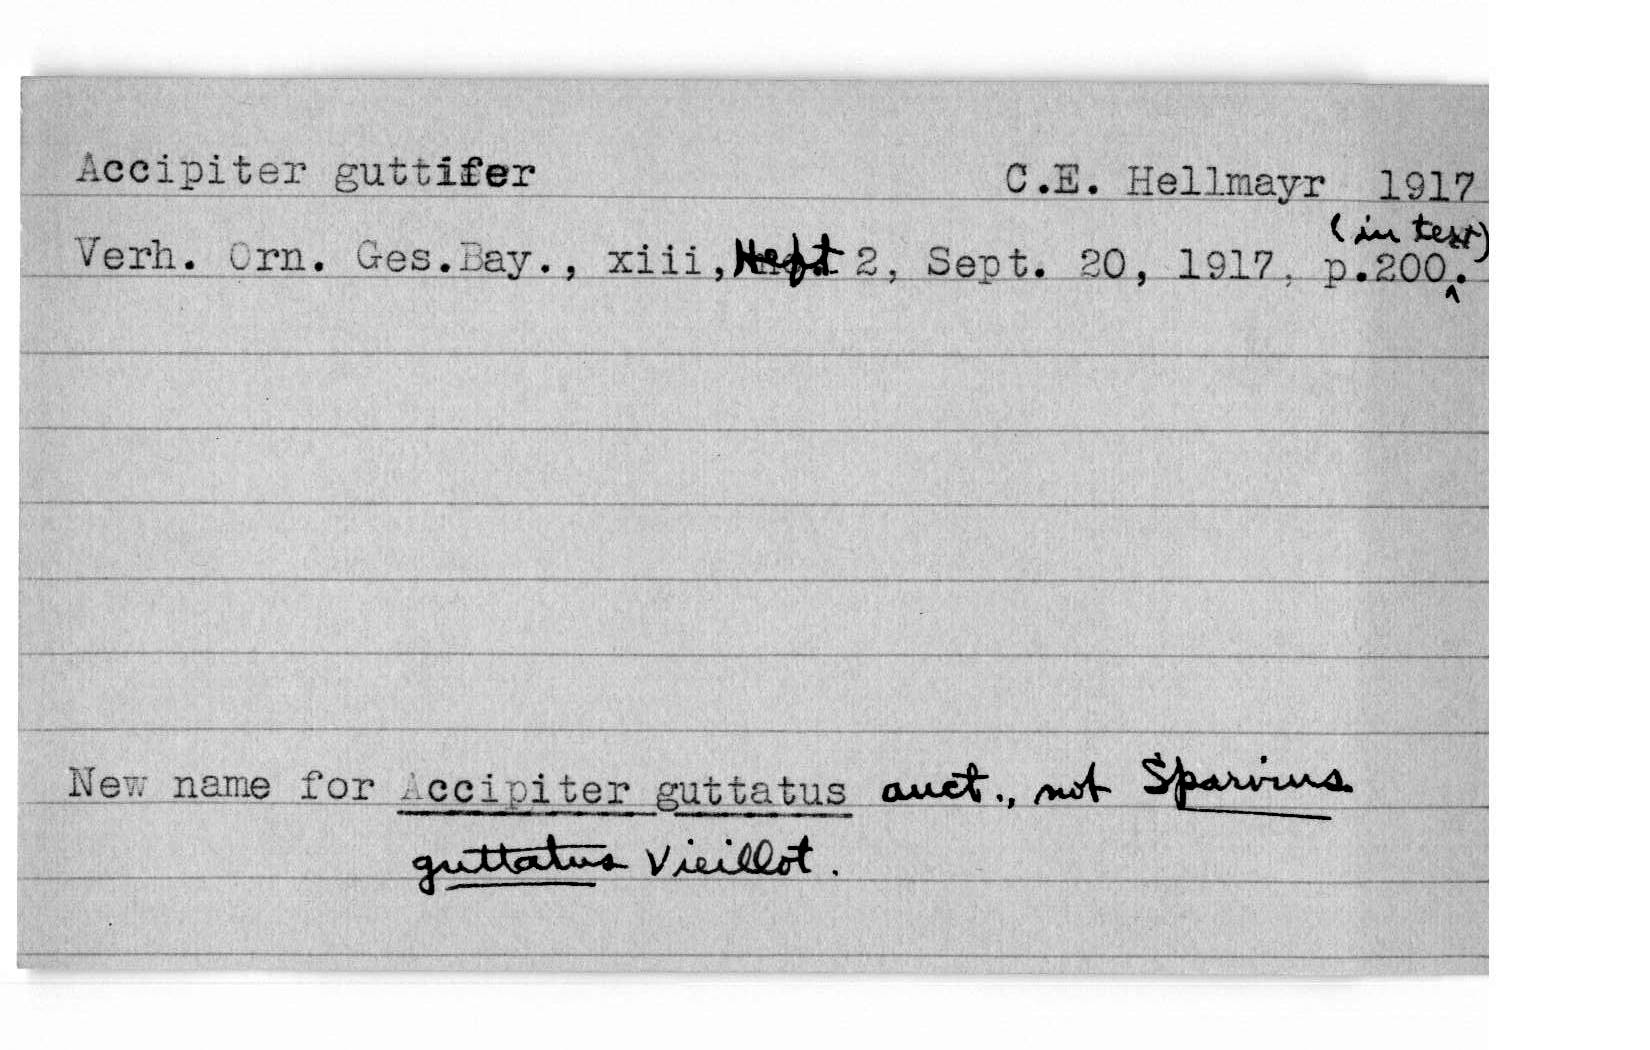 Accipiter guttifer C.E. Hellmayr 1917
Verh. Orn. Ges.Bay., xiii, Heft 2, Sept. 20, 1917, p.200 (in text).
New name for Accipiter guttatus auct., not Sparvius
guttatus Vieillot.